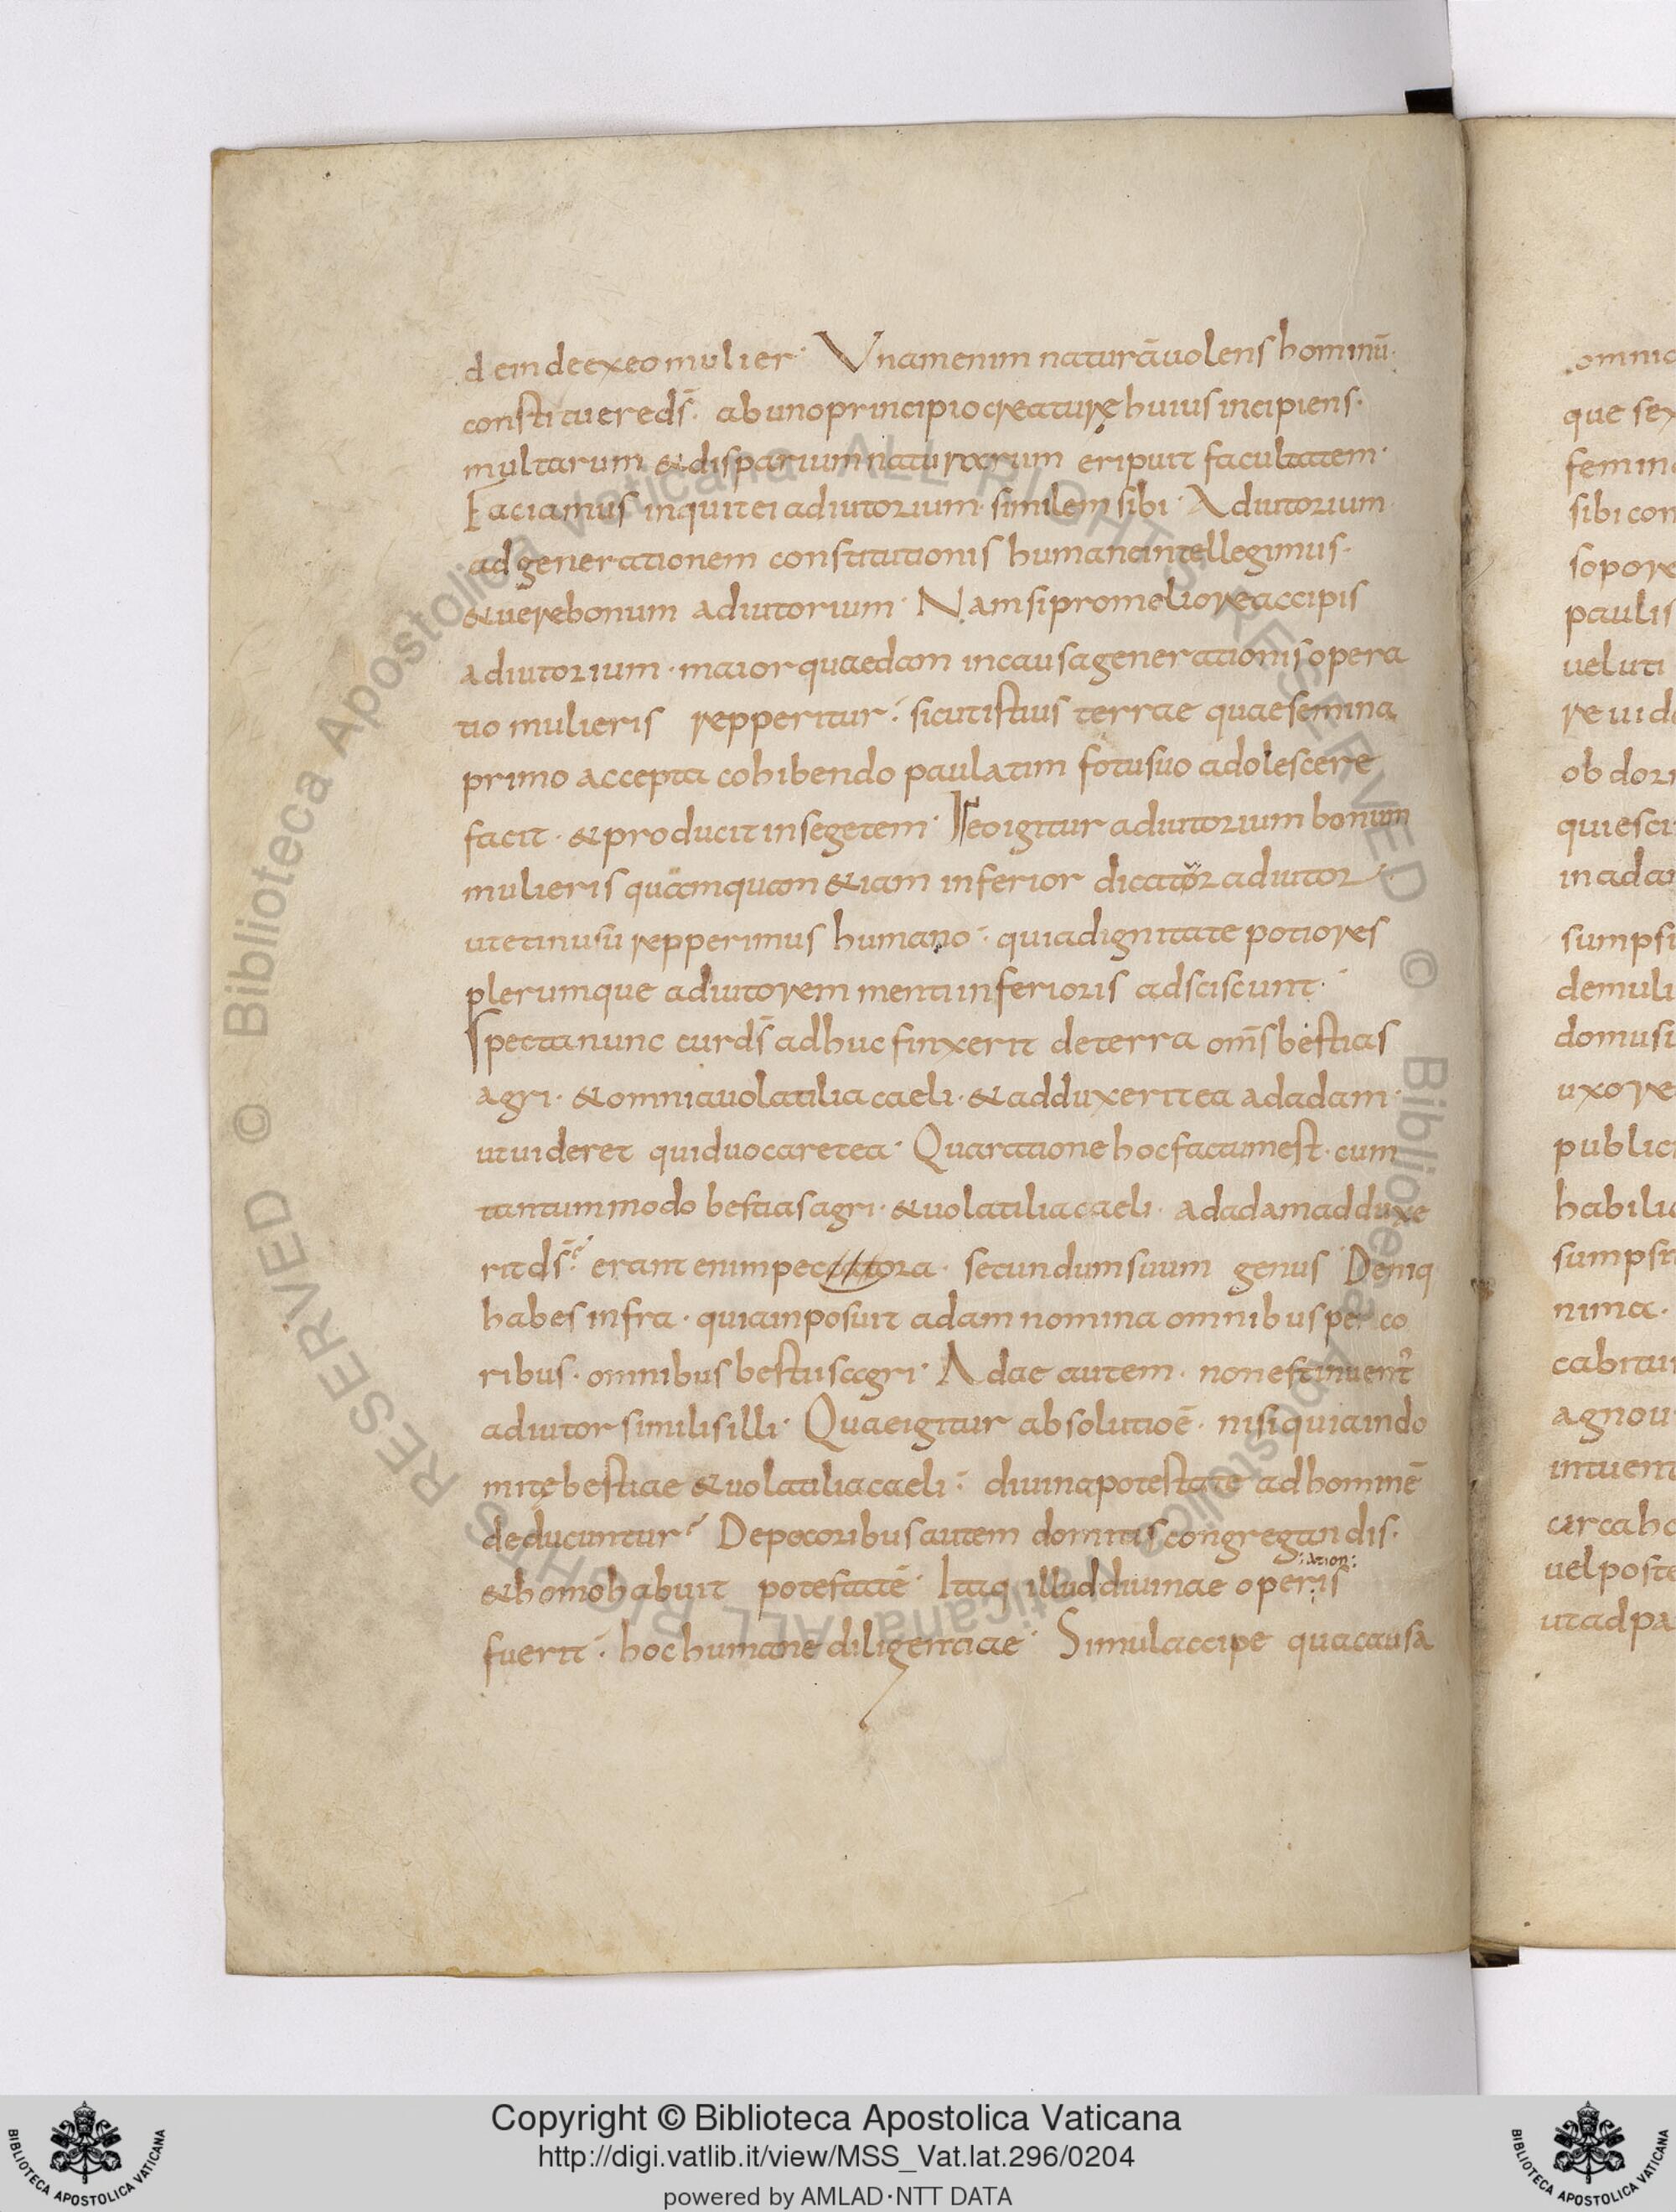 deinde ex eo mulier· Vnam enim naturā uolens hominū·
constituere ds̄· ab uno principio creaturę huius incipiens·
multarum & disparium naturarum eripuit facultatem·
Faciamus inquit ei adiutorium· similem sibi· Adiutorium
ad generationem constitutionis humane intellegimus·
& uere bonum adiutorium· Nam si pro meliore accipis
adiutorium· maior quaedam in causa generationis opera
tio mulieris repperitur· sicut istius terrae quae semina
primo accepta cohibendo paulatim fotu suo adolescere
facit· & producit in segetem· In eo igitur adiutorium bonum
mulieris quamquam & iam inferior dicator adiutor
ut et in usu repperimus humano· quia dignitate potiores
plerumque adiutorem menti inferioris adsciscunt·
Specta nunc cur ds̄ adhuc finxerit de terra oms̄ bestias
agri· & omnia uolatilia caeli· & adduxerit ea ad adam·
ut uideret quid uocaret ea· Qua ratione hoc factum est· cum
tantummodo bestias agri· & uolatilia caeli· ad adam adduxe
rit ds̄· erant enim peccatora· secundum suum genus Deniq
habes infra· quia inposuit adam nomina omnibus peco
ribus· omnibus bestiis agri· Adae autem· non est inuent'
adiutor similis illi· Quae igitur absolutio ē· nisi quia indo
mitę bestiae & uolatilia caeli· diuina potestate ad hominē
deducuntur? De pecoribus autem domitis congregandis·
& homo habuit potestatē· Itaq illud diuinae operis
:ation:
fuerit· hoc humane diligentiae· Simul accipe qua causa
omnia
que sex
femin
sibi con
sopore
paulis
ueluti
re uide
ob dor
quiesci
in ada
sumpsi
de muli
domus
uxore
public
habilu
sumpsi
nima·
cabitur
agnou
intuent
circa ho
uel poste
ut ad pa
Copyright © Biblioteca Apostolica Vaticana
http://digi.vatlib.it/view/MSS_Vat.lat.296/0204
powered by AMLAD·NTT DATA
BIBLIOTECA APOSTOLICA VATICANA
BIBLIOTECA APOSTOLICA VATICANA
© Biblioteca Apostolica Vaticana ALL RIGHTS RESERVED © Biblioteca Apostolica Vaticana ALL RIGHTS RESERVED